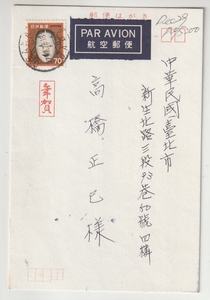 郵便はがき
PAR AVION
航空郵便
70
年賀
中華民國臺北市
新生北路三段93巷50號四樓
高橋正巳様